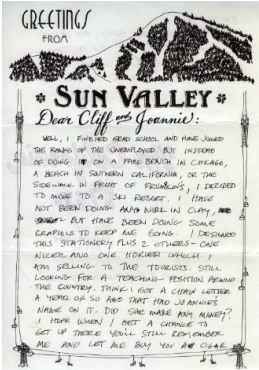 GREETINGS
FROM
SUN VALLEY
Dear Cliff and Joannie:
WELL, I FINISHED GRAD SCHOOL AND HAVE JOINED
THE RANKS OF THE UNEMPLOYED. BUT INSTEAD
OF DOING IT ON A PARK BENCH IN CHICAGO,
A BEACH IN SOUTHERN CALIFORNIA, OR THE
SIDEWALK IN FRONT OF FRUMKINS, I DECIDED
TO MOVE TO A SKI RESORT. I HAVE
NOT BEEN DOING ANY WORK IN CLAY,
BUT HAVE BEEN DOING SOME
GRAPHICS TO KEEP ME GOING. I DESIGNED
THIS STATIONERY PLUS 2 OTHERS - ONE
NICER AND ONE HOKIER WHICH I
AM SELLING TO THE TOURISTS. STILL
LOOKING FOR A TEACHING POSITION AROUND
THE COUNTRY. THINK I GOT A CHAIN LETTER
A YEAR OR SO AGO THAT HAD JOANNIE'S
NAME ON IT. DID SHE MAKE ANY MONEY?
I HOPE WHEN I GET A CHANCE TO
GET UP THERE YOU'LL STILL REMEMBER
ME AND LET ME BUY YOU A CIGAR